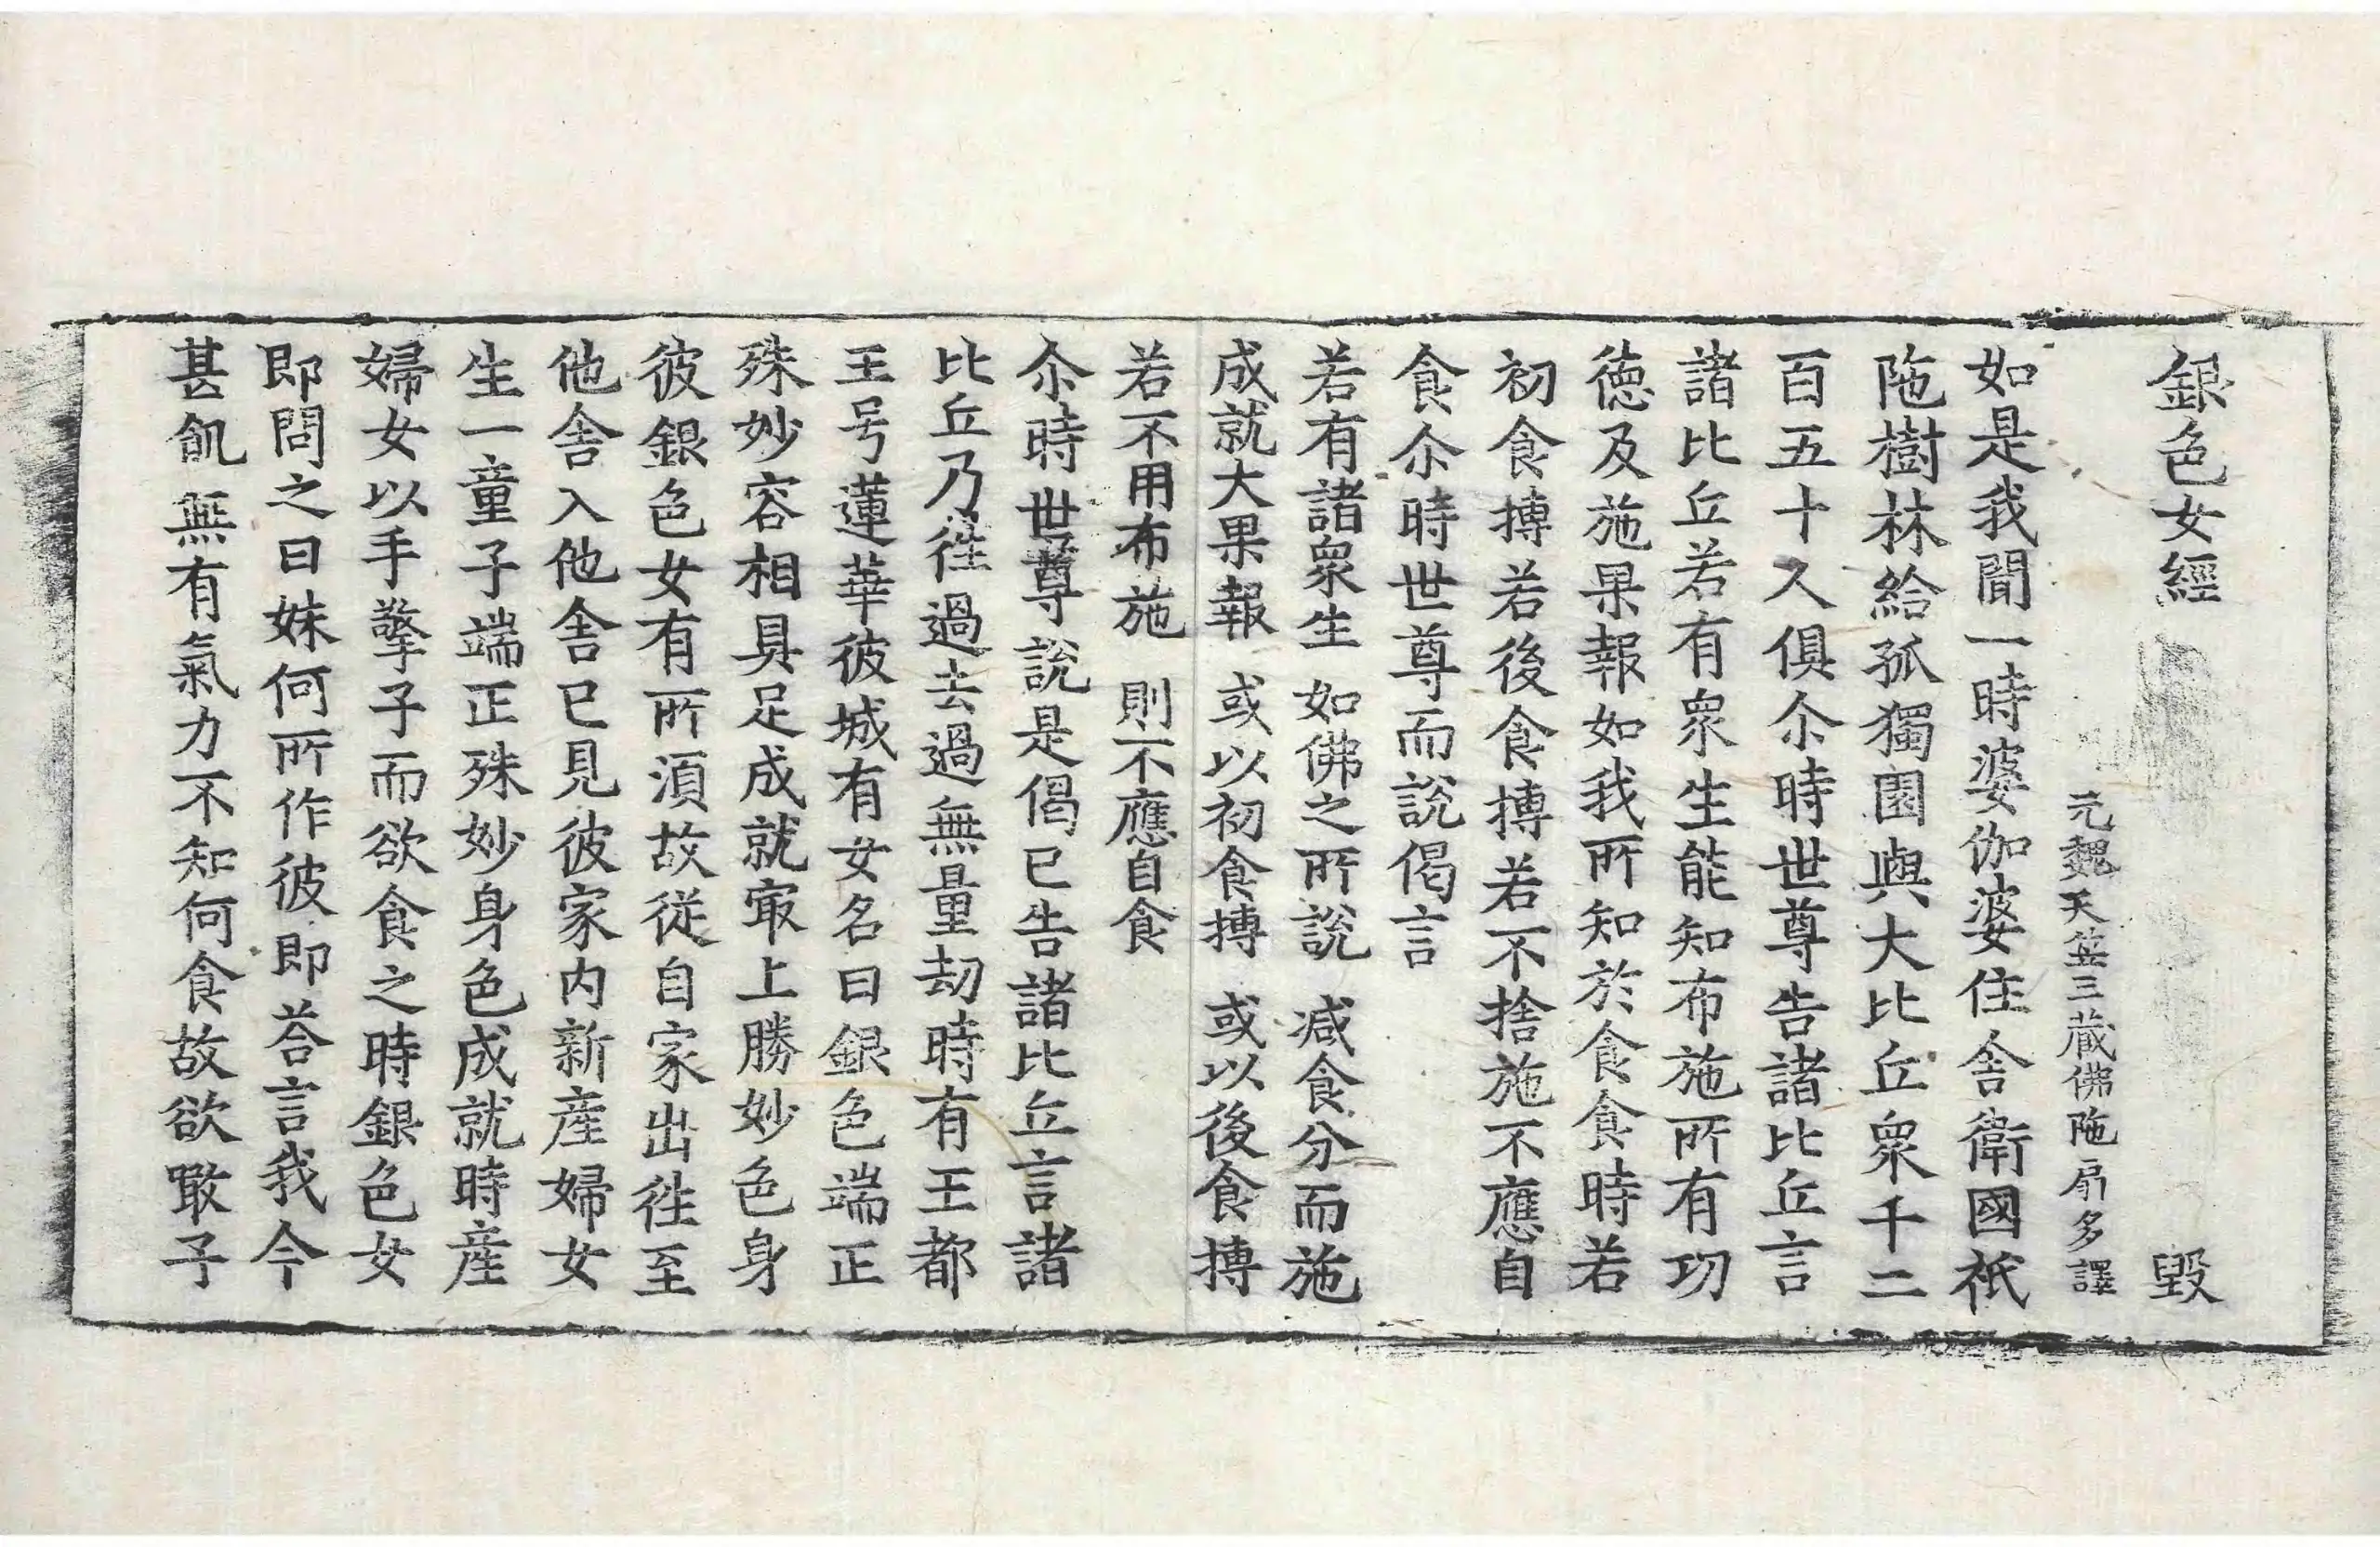 銀色女經 毀
元魏天竺三蔵佛陁扇多譯
如是我聞一時婆伽婆住舎衛國祇
陁樹林給孤獨園與大比丘衆千二
百五十人俱尒時世尊告諸比丘言
諸比丘若有衆生能知布施所有功
徳及施果報如我所知於食食時若
初食摶若後食摶若不捨施不應自
食尒時世尊而說偈言
若有諸衆生 如佛之所說 減食分而施
成就大果報 或以初食摶 或以後食摶
若不用布施 則不應自食
尒時世尊說是偈已告諸比丘言諸
比丘乃徃過去過無量劫時有王都
王号蓮華彼城有女名曰銀色端正
殊妙容相具足成就㝡上勝妙色身
彼銀色女有所須故從自家出徃至
他舎入他舎已見彼家内新産婦女
生一童子端正殊妙身色成就時産
婦女以手擎子而欲食之時銀色女
即問之曰妹何所作彼即荅言我今
甚飢無有氣力不知何食故欲噉子